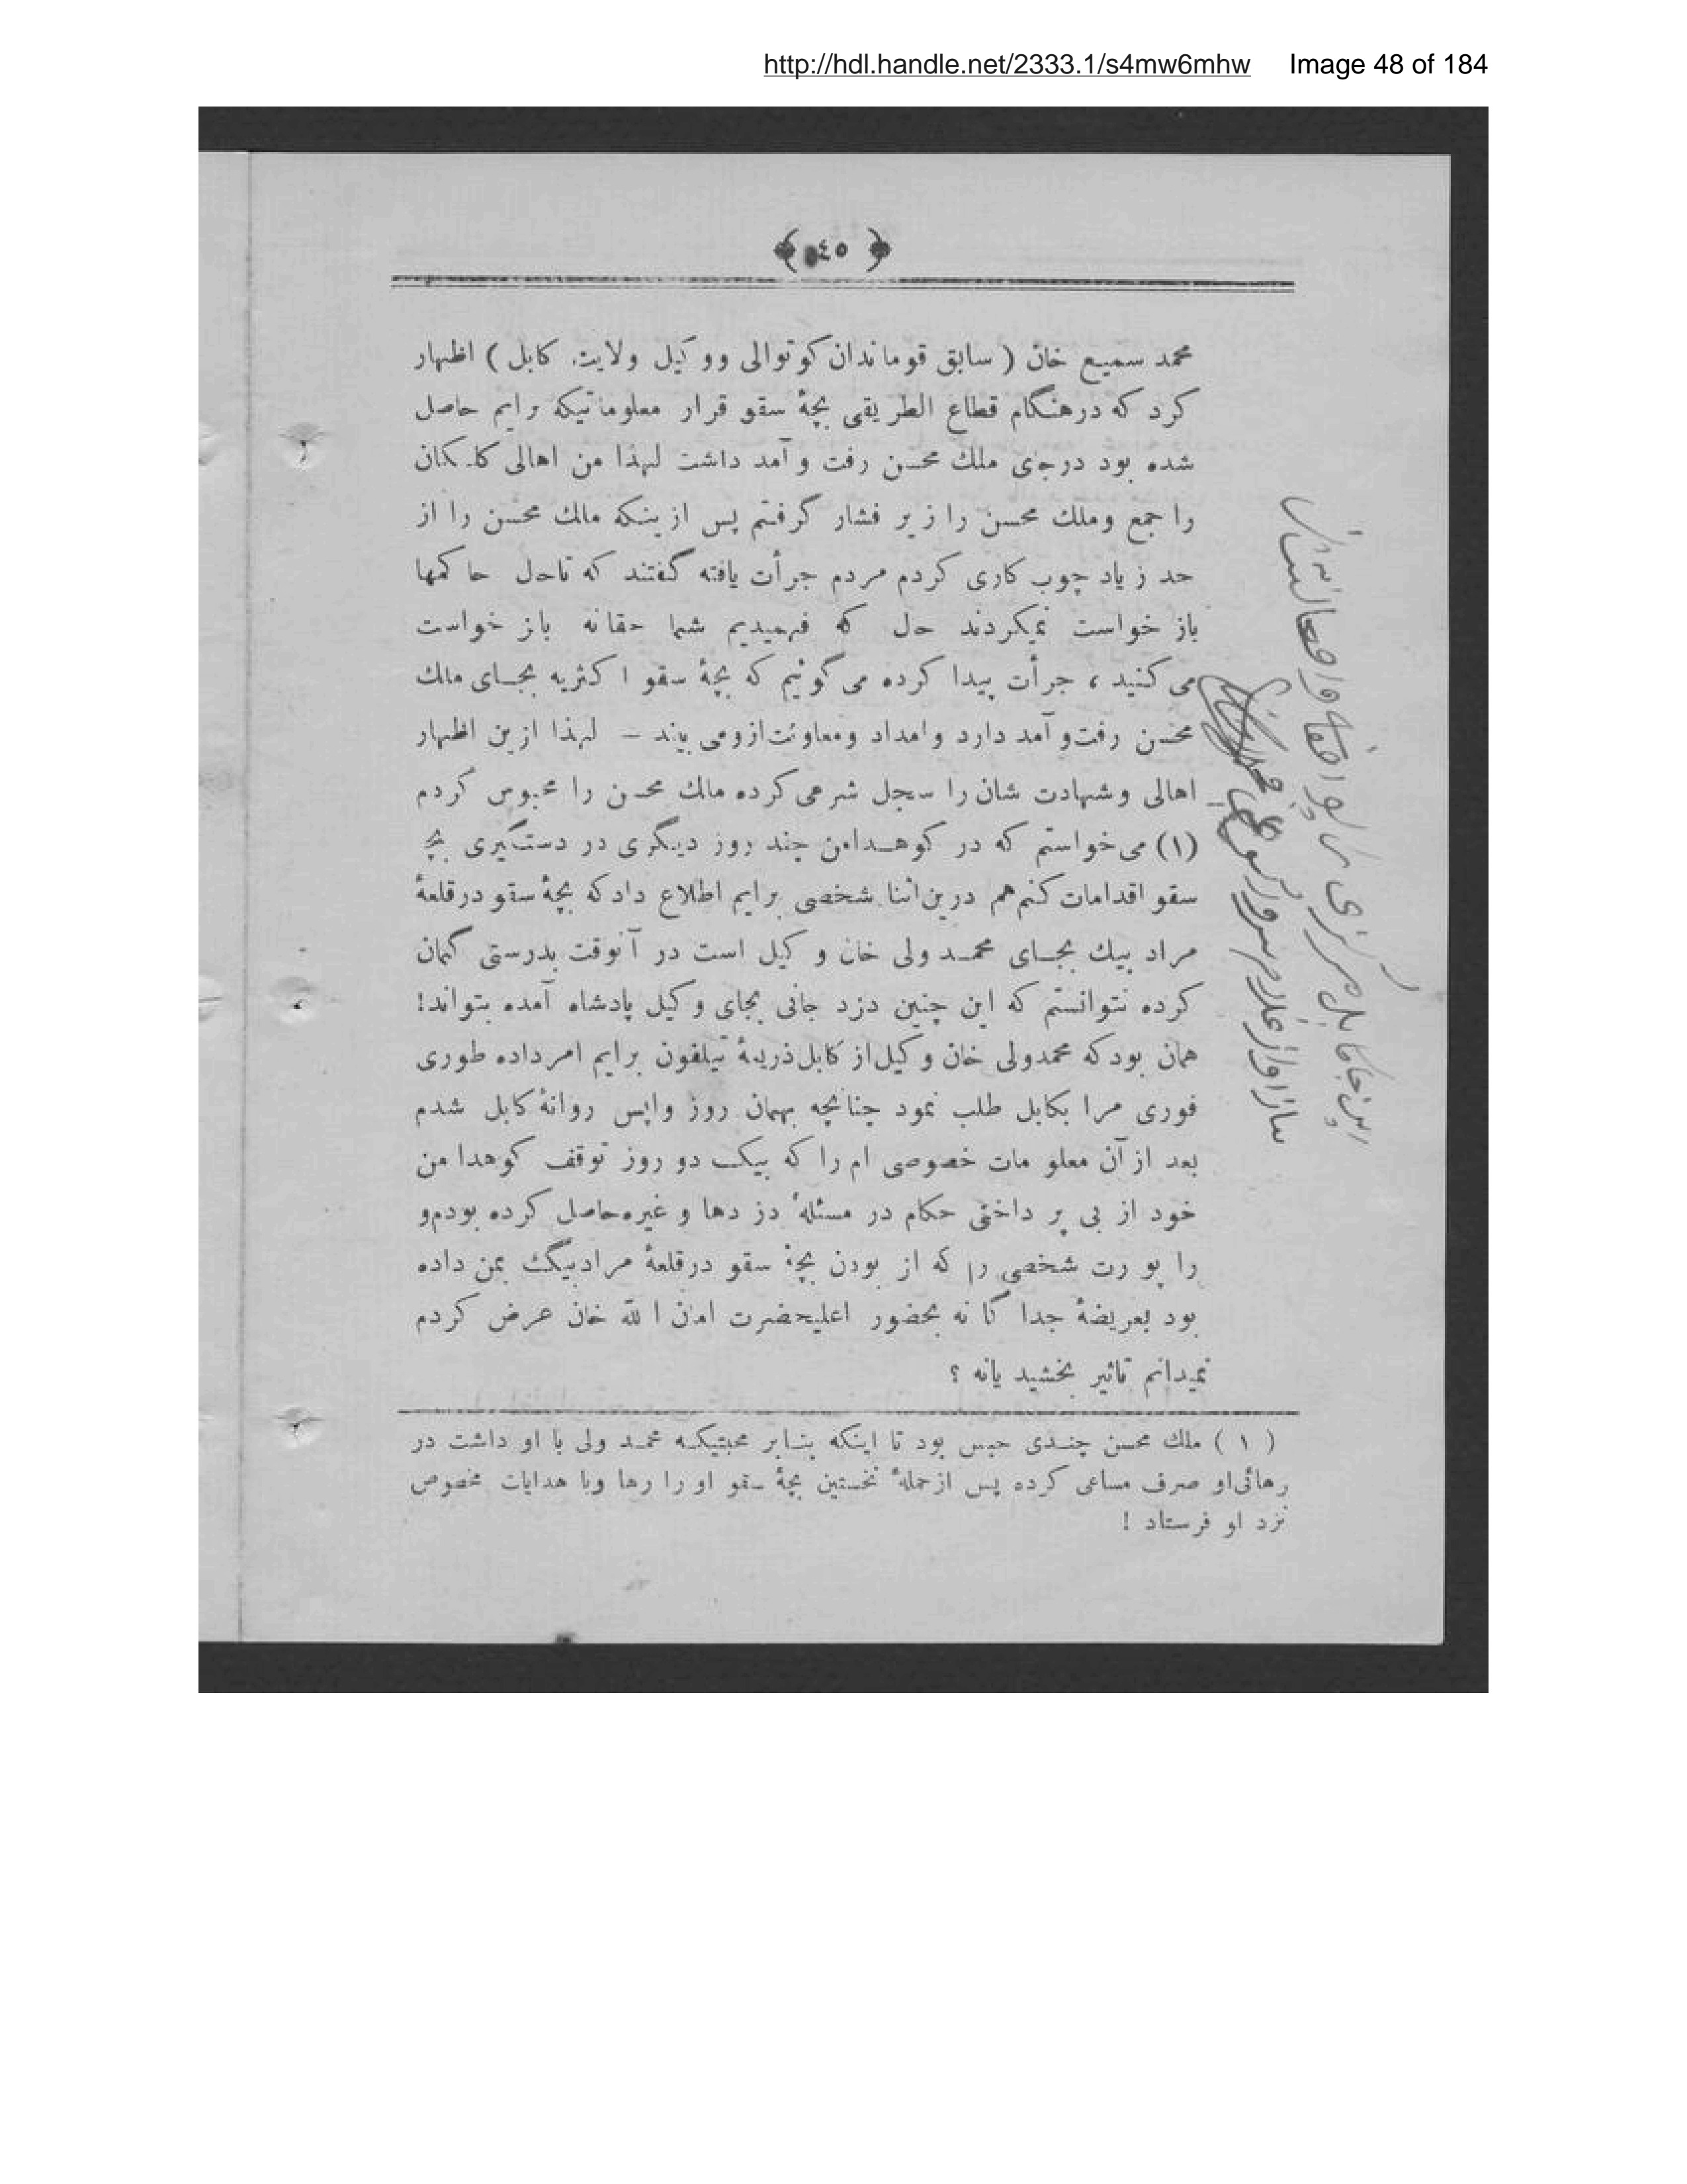 http://hdl.handle.net/2333.1/s4mw6mhw Image 48 of 184
﴿ ٤٥ ﴾
محمد سمیع خان ( سابق قوماندان کوتوالی ووکیل ولایت کابل ) اظهار
کرد که درهنگام قطاع الطریقی بچهٔ سقو قرار معلوماتیکه برایم حاصل
شده بود درجای ملك محسن رفت و آمد داشت لهذا من اهالی کلکان
را جمع وملك محسن را زیر فشار گرفتم پس ازینکه مالك محسن را از
حد زیاد چوب کاری کردم مردم جرأت یافته گفتند که تاحل حاکمها
باز خواست نمیکردند حل که فهمیدیم شما حقانه باز خواست
می کنید ، جرأت پیدا کرده می گوئیم که بچهٔ سقو اکثریه بجای مالك
محسن رفت و آمد دارد و امداد و معاونت ازومی بیند – لهذا ازین اظهار
اهالی و شهادت شان را سجل شرعی کرده مالك محسن را محبوس کردم
(۱) می خواستم که در کوهدامن چند روز دیگری در دستگیری بچهٔ
سقو اقدامات کنم هم درین اثنا شخصی برایم اطلاع داد که بچهٔ سقو درقلعهٔ
مراد بیك بجای محمد ولی خان وکیل است در آنوقت بدرستی گمان
کرده نتوانستم که این چنین دزد جانی بجای وکیل پادشاه آمده بتواند!
همان بود که محمدولی خان وکیل از کابل ذریعهٔ تیلفون برایم امر داده طوری
فوری مرا بکابل طلب نمود چنانچه بهمان روز واپس روانهٔ کابل شدم
بعد از آن معلو مات خصوصی ام را که بیک دو روز توقف کوهدا من
خود از بی پر داختی حکام در مسئلهٔ دز دها و غیره حاصل کرده بودم و
را پو رت شخصی را که از بودن بچهٔ سقو درقلعهٔ مرادبیگ بمن داده
بود بعریضهٔ جدا گا نه بحضور اعلیحضرت امان ا لله خان عرض کردم
نمیدانم تاثیر بخشید یانه ؟
( ۱ ) ملك محسن چندی حبس بود تا اینکه بنابر محبتیکه محمد ولی با او داشت در
رهائی او صرف مساعی کرده پس ازحملهٔ نخستین بچهٔ سقو او را رها وبا هدایات مخصوص
نزد او فرستاد !